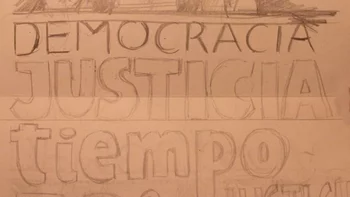 DEMOCRACIA
JUSTICIA
tiempo